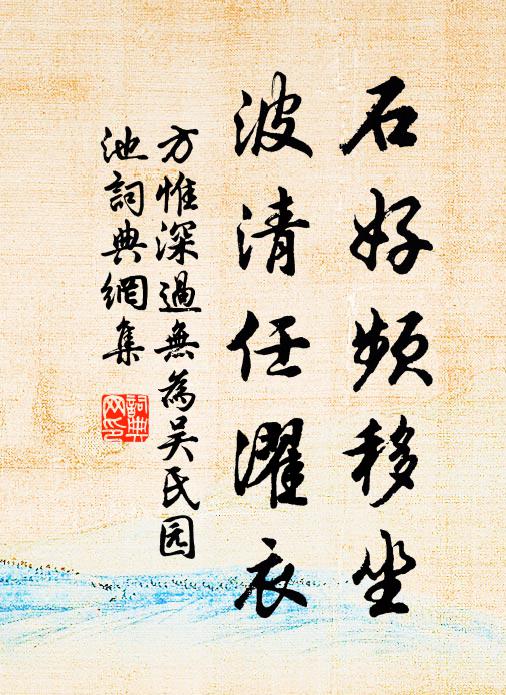 石好頻移坐
波清任濯衣
方惟深過無為吳氏园
池詞典網集
詞典
网印